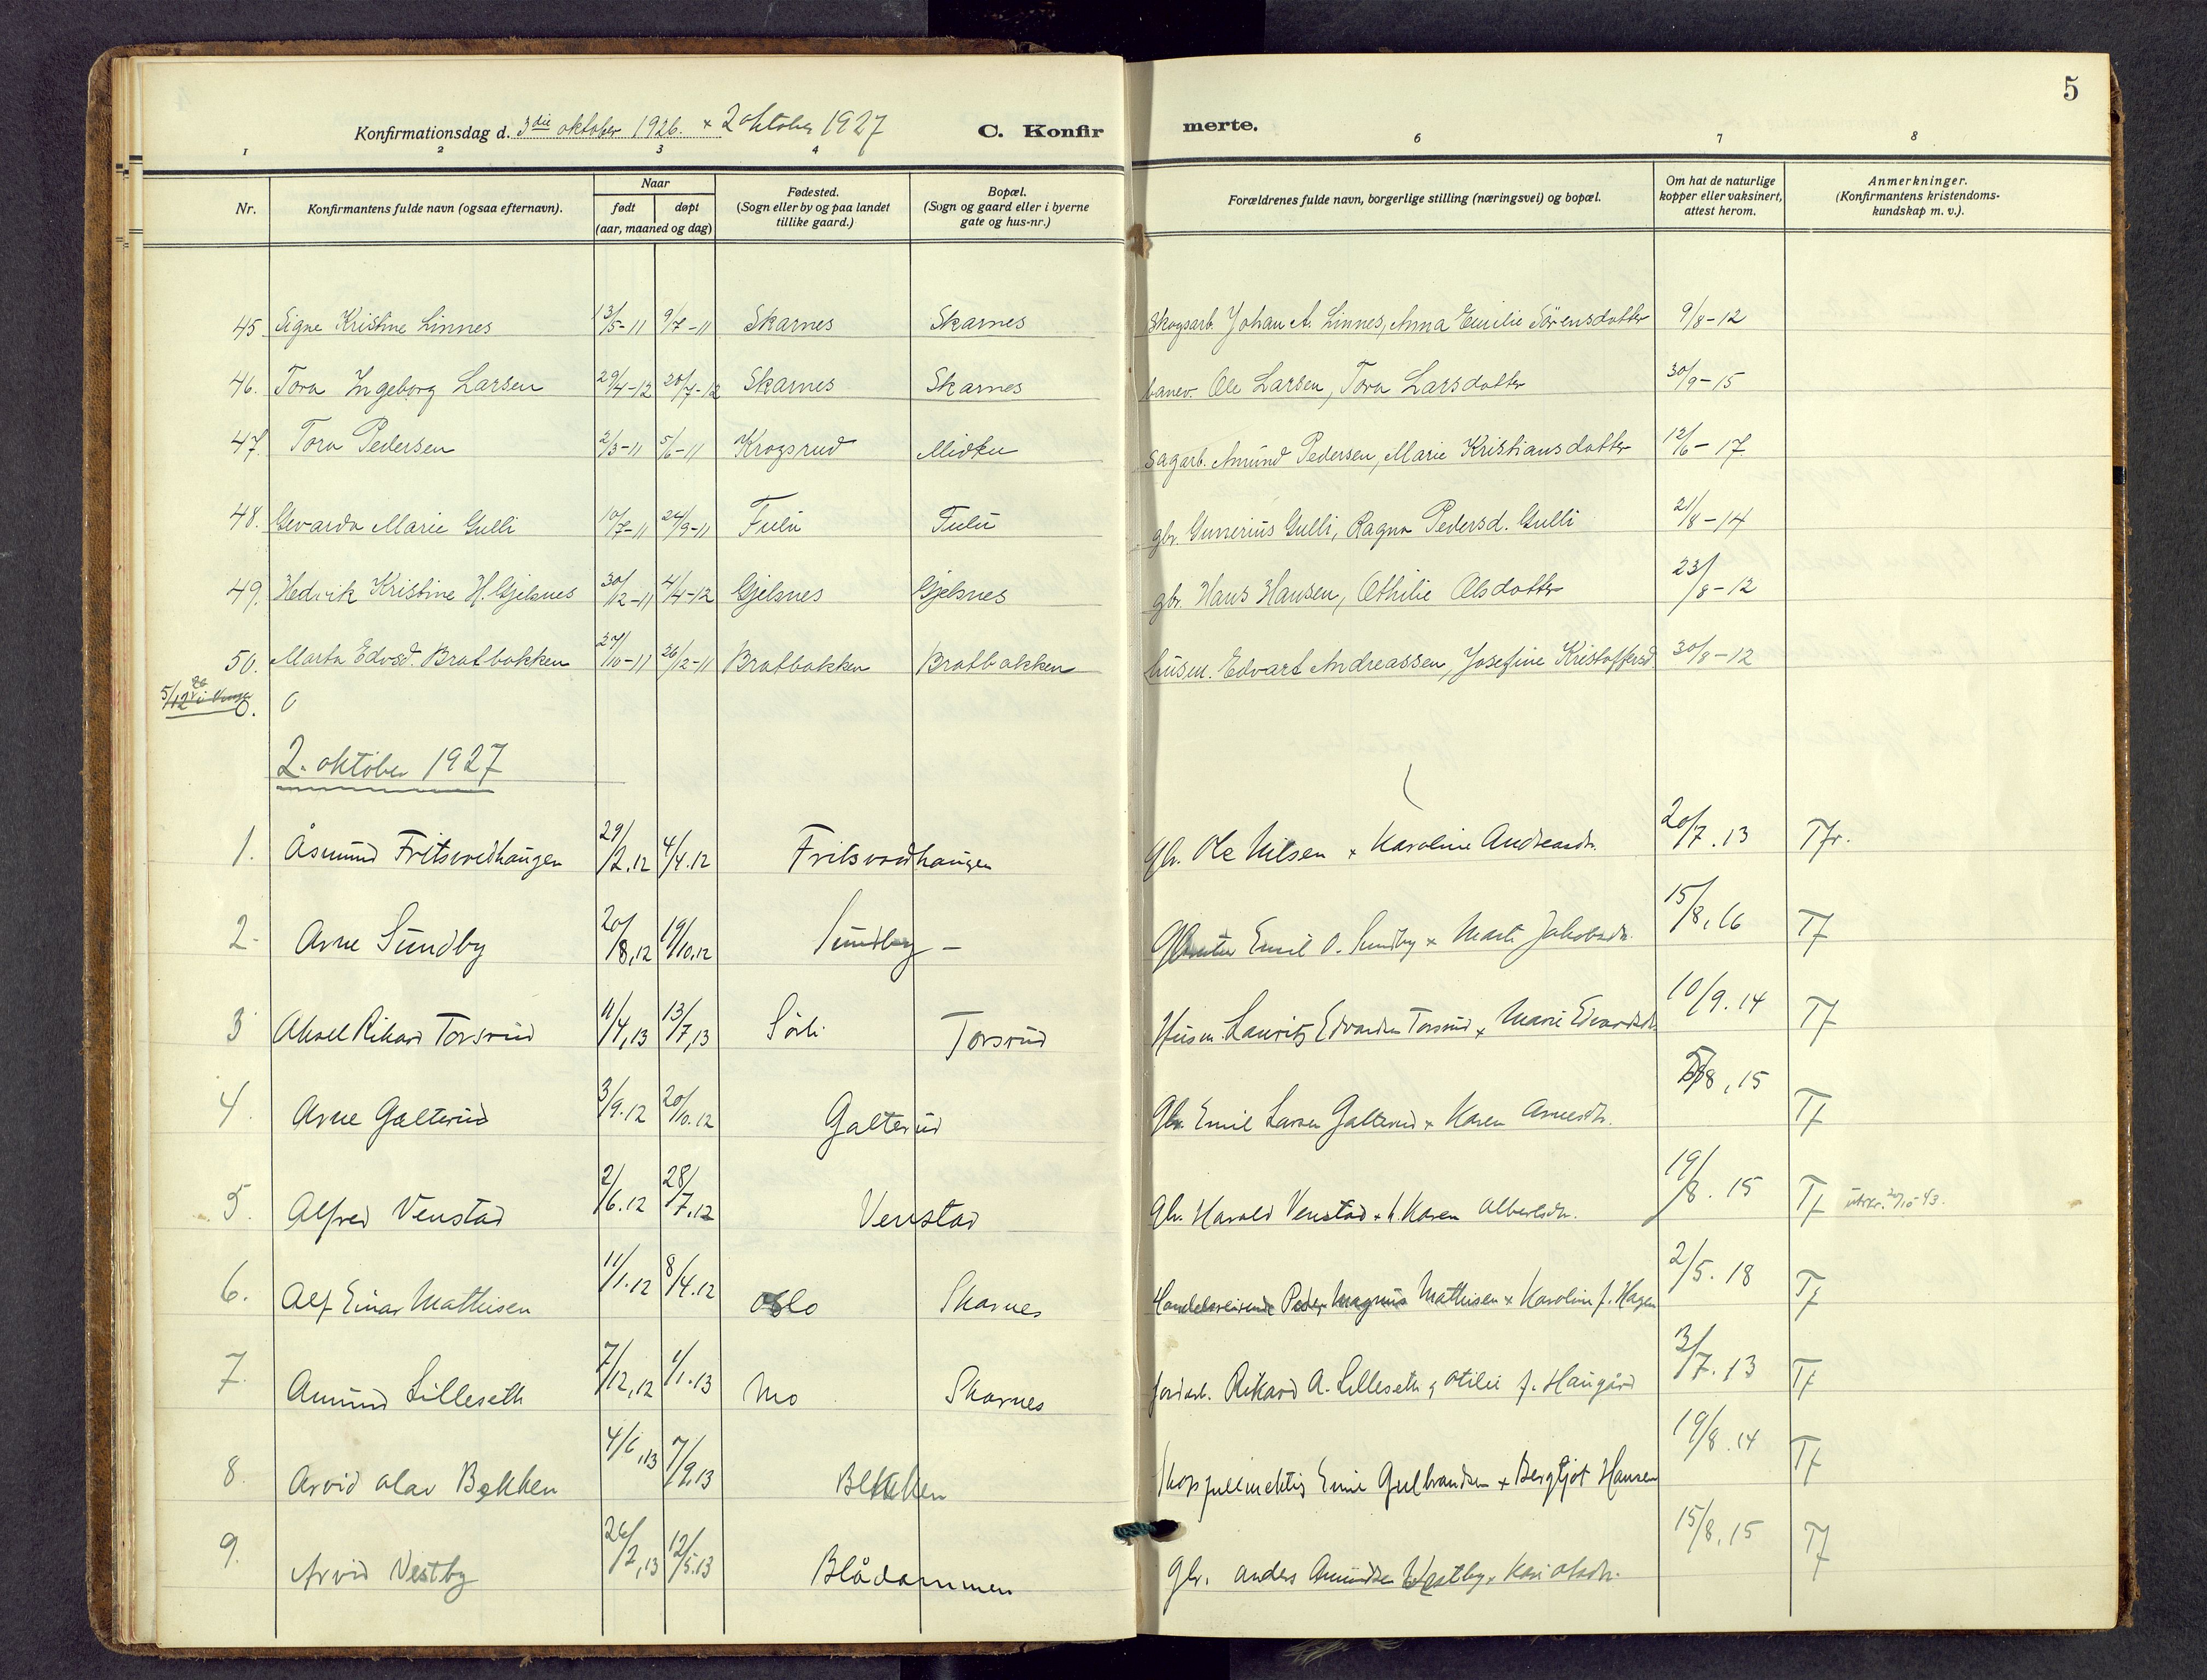 5
Konfirmationsdag d. 3die oktober 1926. + 2 oktober 1927 C. Konfir merte.
1 2 3 4 6 7 8
Nr. Konfirmantens fulde navn (ogsaa efternavn). Naar født døpt (aar, maaned og dag) Fødested. (Sogn eller by og paa landet tillike gaard.) Bopæl. (Sogn og gaard eller i byerne gate og hus-nr.) Forældrenes fulde navn, borgerlige stilling (næringsvei) og bopæl. Om hat de naturlige kopper eller vaksinert, attest herom. Anmerkninger. (Konfirmantens kristendoms- kundskap m. v.).
45 Signe Kristine Linnes 13/5-11 9/7-11 Skarnes Skarnes Skogsarb. Johan A. Linnes, Anna Emilie Sörensdatter 9/8-12
46. Tora Ingeborg Larsen 29/4-12 20/7-12 Skarnes Skarnes banev. Ole Larsen, Tora Larsdatter 30/9-15
47. Tora Pedersen 2/3-11 5/6-11 Krogsrud Midtu Sagarb. Amund Pedersen, Marie Kristiansdatter 12/6-17.
48. Gevarda Marie Gulli 10/7-11 24/9-11 Fulu Fulu gbr. Gunerius Gulli, Ragna Pedersd. Gulli 21/8-14
49. Hedvik Kristine H. Gjelsnes 30/12-11 4/4-12 Gjelsnes Gjelsnes gbr. Hans Hansen, Othilie Olsdatter 23/8-12
50. Marta Edvsd. Bratbakken 27/10-11 26/12-11 Bratbakken Bratbakken husm. Edvart Andreassen, Josefine Kristoffersd. 30/8-12
2. oktober 1927
1. Åsmund Fritsvoldhaugen 29/2.12 4/4.12 Fritsvoldhaugen Gbr. Ole Nilsen + Karoline Andreasdr. 20/7.13 Tfr.
2- Arne Sundby 20/8,12 19/10,12 Sundby - Emil O. Sundby + Marte Jakobsdr. 15/8,16 Tf
3 Aksel Rikard Torsrud 11/4,13 13/7,13 Sörli Torsrud Husm. Lauritz Edvardsen Torsrud + Marie Edvardsdr. 10/9.14 Tf
4. Arne Galterud 3/9.12 20/10.12 Galterud Gbr. Emil Larsen Galterud + Karen Arnesdr. 8,15 Tf
5. Alfred Venstad 2/6.12 28/7.12 Venstad Gbr. Harald Venstad + h. Karen Albertsdr. 19/8.15 Tf utskr. 20/10-43.
6. Alf Einar Mathisen 11/1.12 8/4.12 Oslo Skarnes Handelsreisende Peder Magnus Mathisen + Karoline f. Hagen 2/5.18 Tf
7. Amund Lilleseth 7/12,12 1/1.13 Mo Skarnes Jordarb. Rikard A. Lilleseth, Otilie f. Haugård 3/7.13 Tf
8. Arvid Olav Bekken 4/6,13 7/9,13 Bekken Skogsfullmektig Emil Gulbrandsen + Bergljot Hansen 19/8.14 Tf
9. Arvid Vestby 26/2,13 12/5.13 Blådammen Gbr. Anders Amundsen Vestby + Kari Olsdr. 15/8,15 Tf